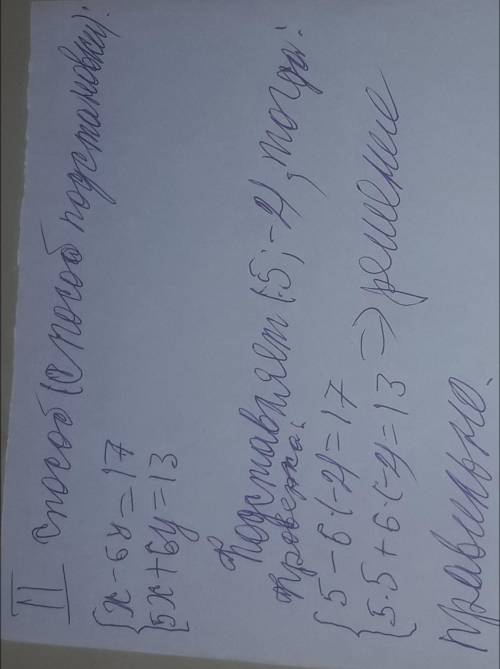 II способ (способ подстановки):
{x-6y=17
{5x+6y=13
Подставляем (5;-2), тогда:
Проверка:
{5-6·(-2)=17
{5·5+6·(-2)=13 => решение
правильно.